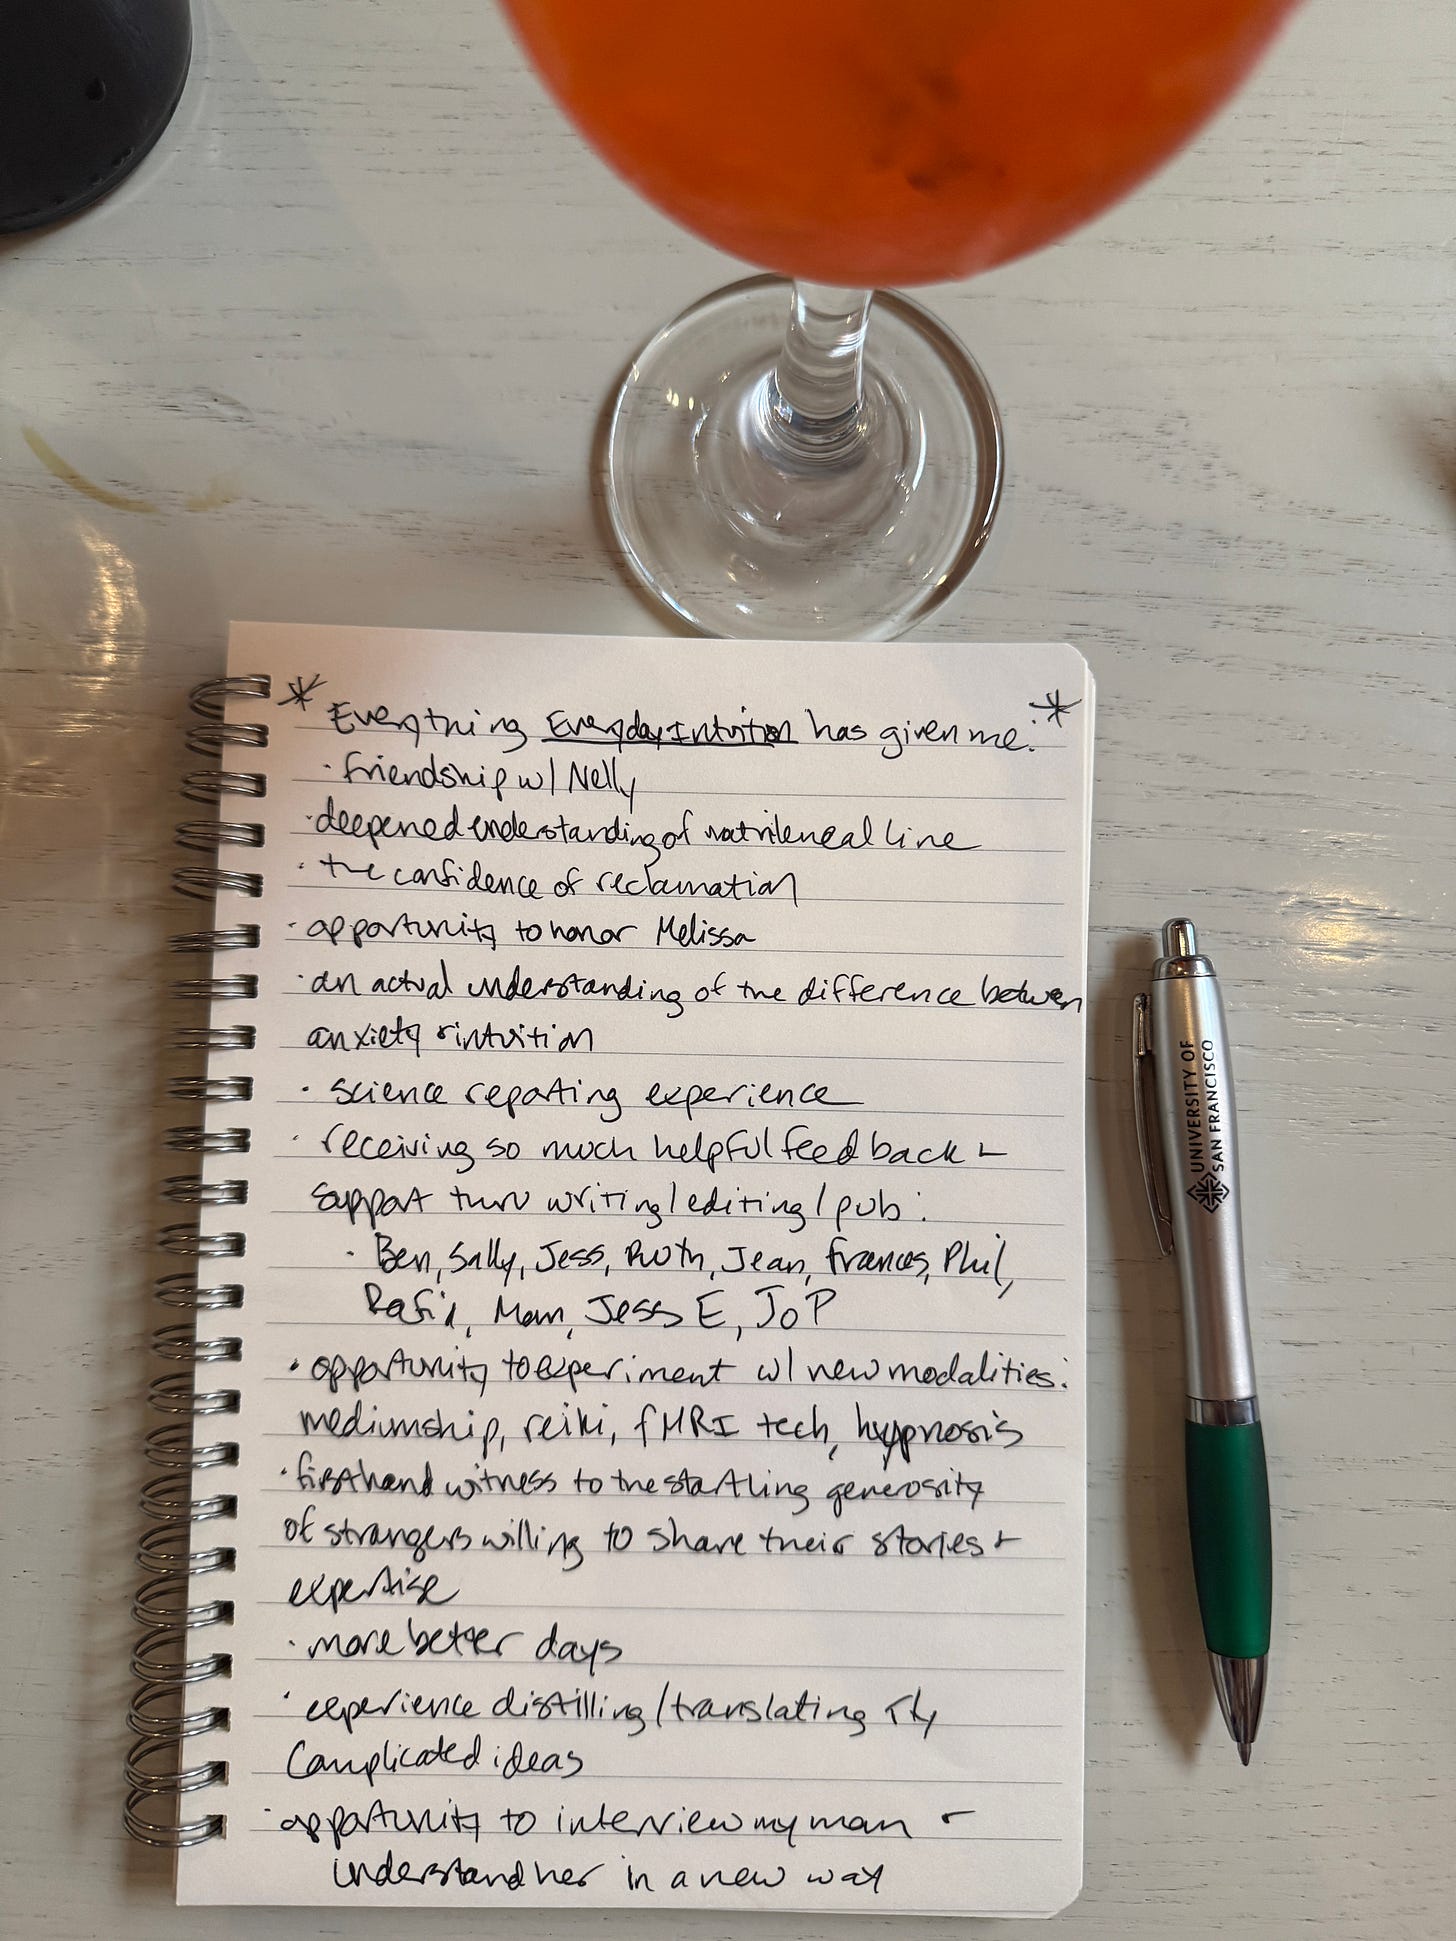 * Everything Everyday Intuition has given me: *
· friendship w/ Nelly
· deepened understanding of matrilineal line
· the confidence of reclamation
· opportunity to honor Melissa
· an actual understanding of the difference between
anxiety + intuition
· science reporting experience
· receiving so much helpful feedback +
support thru writing/editing/pub:
· Ben, Sally, Jess, Ruth, Jean, Frances, Phil,
Mom, Jess E, Jo P
· opportunity to experiment w/ new modalities:
mediumship, reiki, fMRI tech, hypnosis
· firsthand witness to the startling generosity
of strangers willing to share their stories +
expertise
· more better days
· experience distilling/translating rly
complicated ideas
· opportunity to interview my mom +
understand her in a new way
UNIVERSITY OF
SAN FRANCISCO